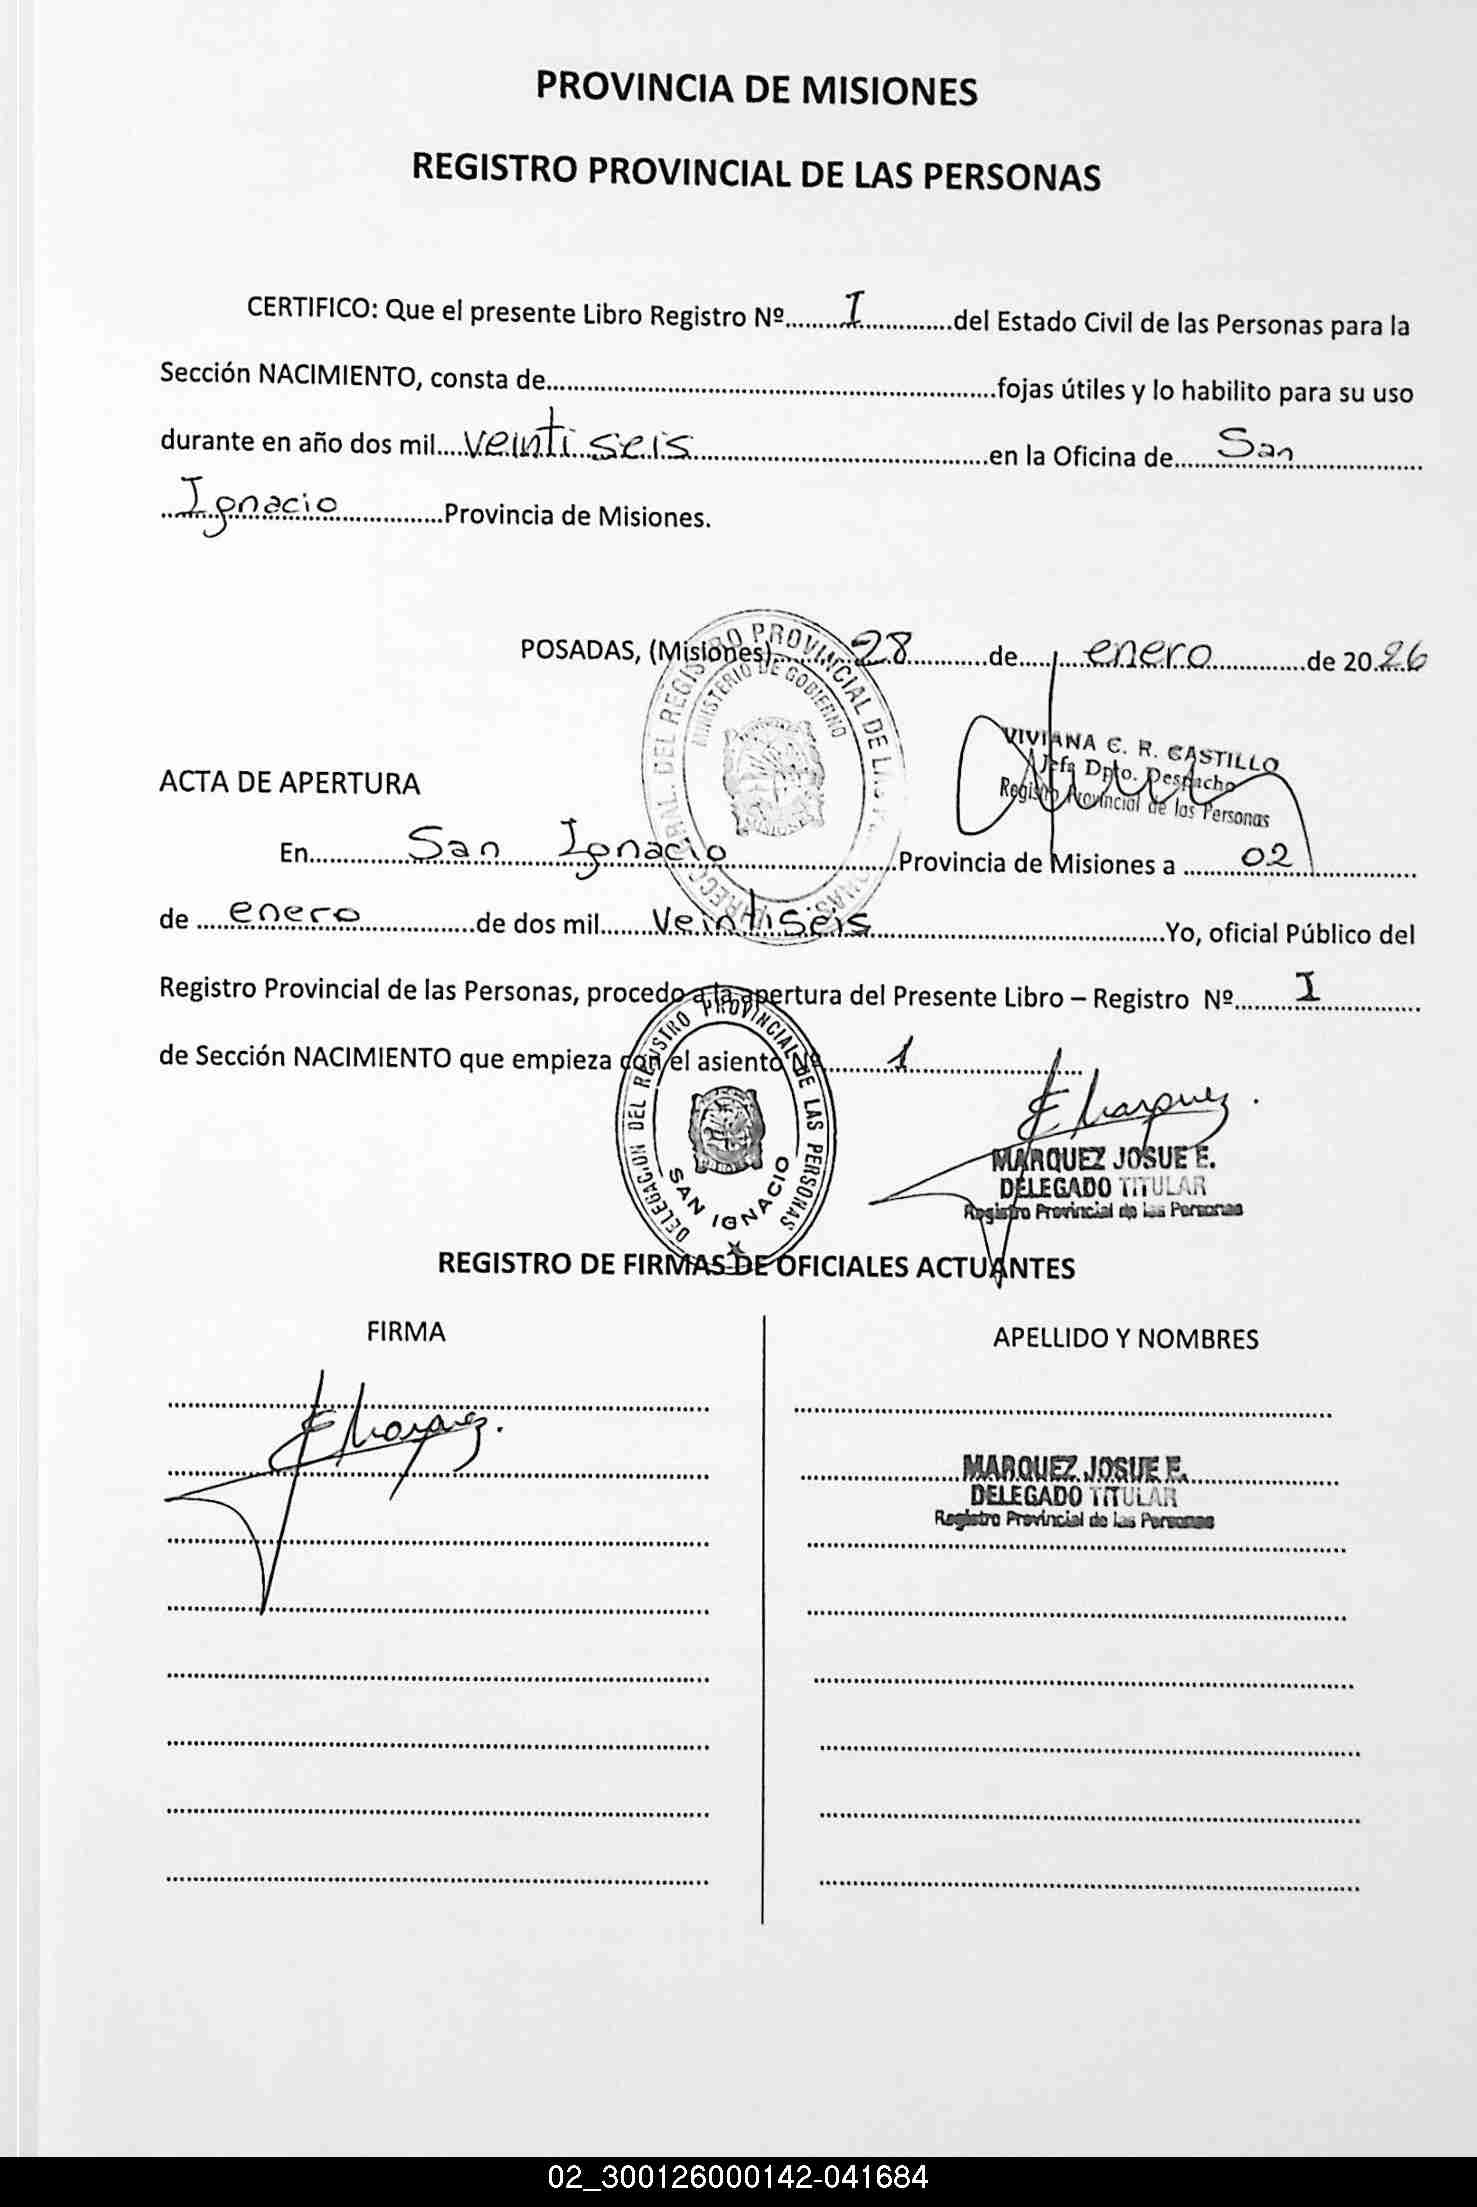 PROVINCIA DE MISIONES
REGISTRO PROVINCIAL DE LAS PERSONAS
CERTIFICO: Que el presente Libro Registro Nº.........I..............del Estado Civil de las Personas para la
Sección NACIMIENTO, consta de....................................................................fojas útiles y lo habilito para su uso
durante en año dos mil....veintiseis.............................................en la Oficina de.......San...................
Ignacio................Provincia de Misiones.
POSADAS, (Misiones)............28............de..........enero..............de 20.26
DIRECC. GRAL. DEL REGISTRO PROVINCIAL DE LAS PERSONAS
MINISTERIO DE GOBIERNO
MISIONES
VIVIANA C. R. CASTILLO
Jefa Dpto. Despacho
Registro Provincial de las Personas
ACTA DE APERTURA
En...............San Ignacio..........................Provincia de Misiones a .........02...................
de .....enero..................de dos mil........Veintiseis.............................................Yo, oficial Público del
Registro Provincial de las Personas, procedo a la apertura del Presente Libro – Registro Nº.........I...............
de Sección NACIMIENTO que empieza con el asiento Nº..........1..........................
DELEGACION DEL REGISTRO PROVINCIAL DE LAS PERSONAS
SAN IGNACIO
EMarquez.
MARQUEZ JOSUE E.
DELEGADO TITULAR
Registro Provincial de las Personas
REGISTRO DE FIRMAS DE OFICIALES ACTUANTES
FIRMA
APELLIDO Y NOMBRES
EMarquez.
MARQUEZ JOSUE E.
DELEGADO TITULAR
Registro Provincial de las Personas
02_300126000142-041684